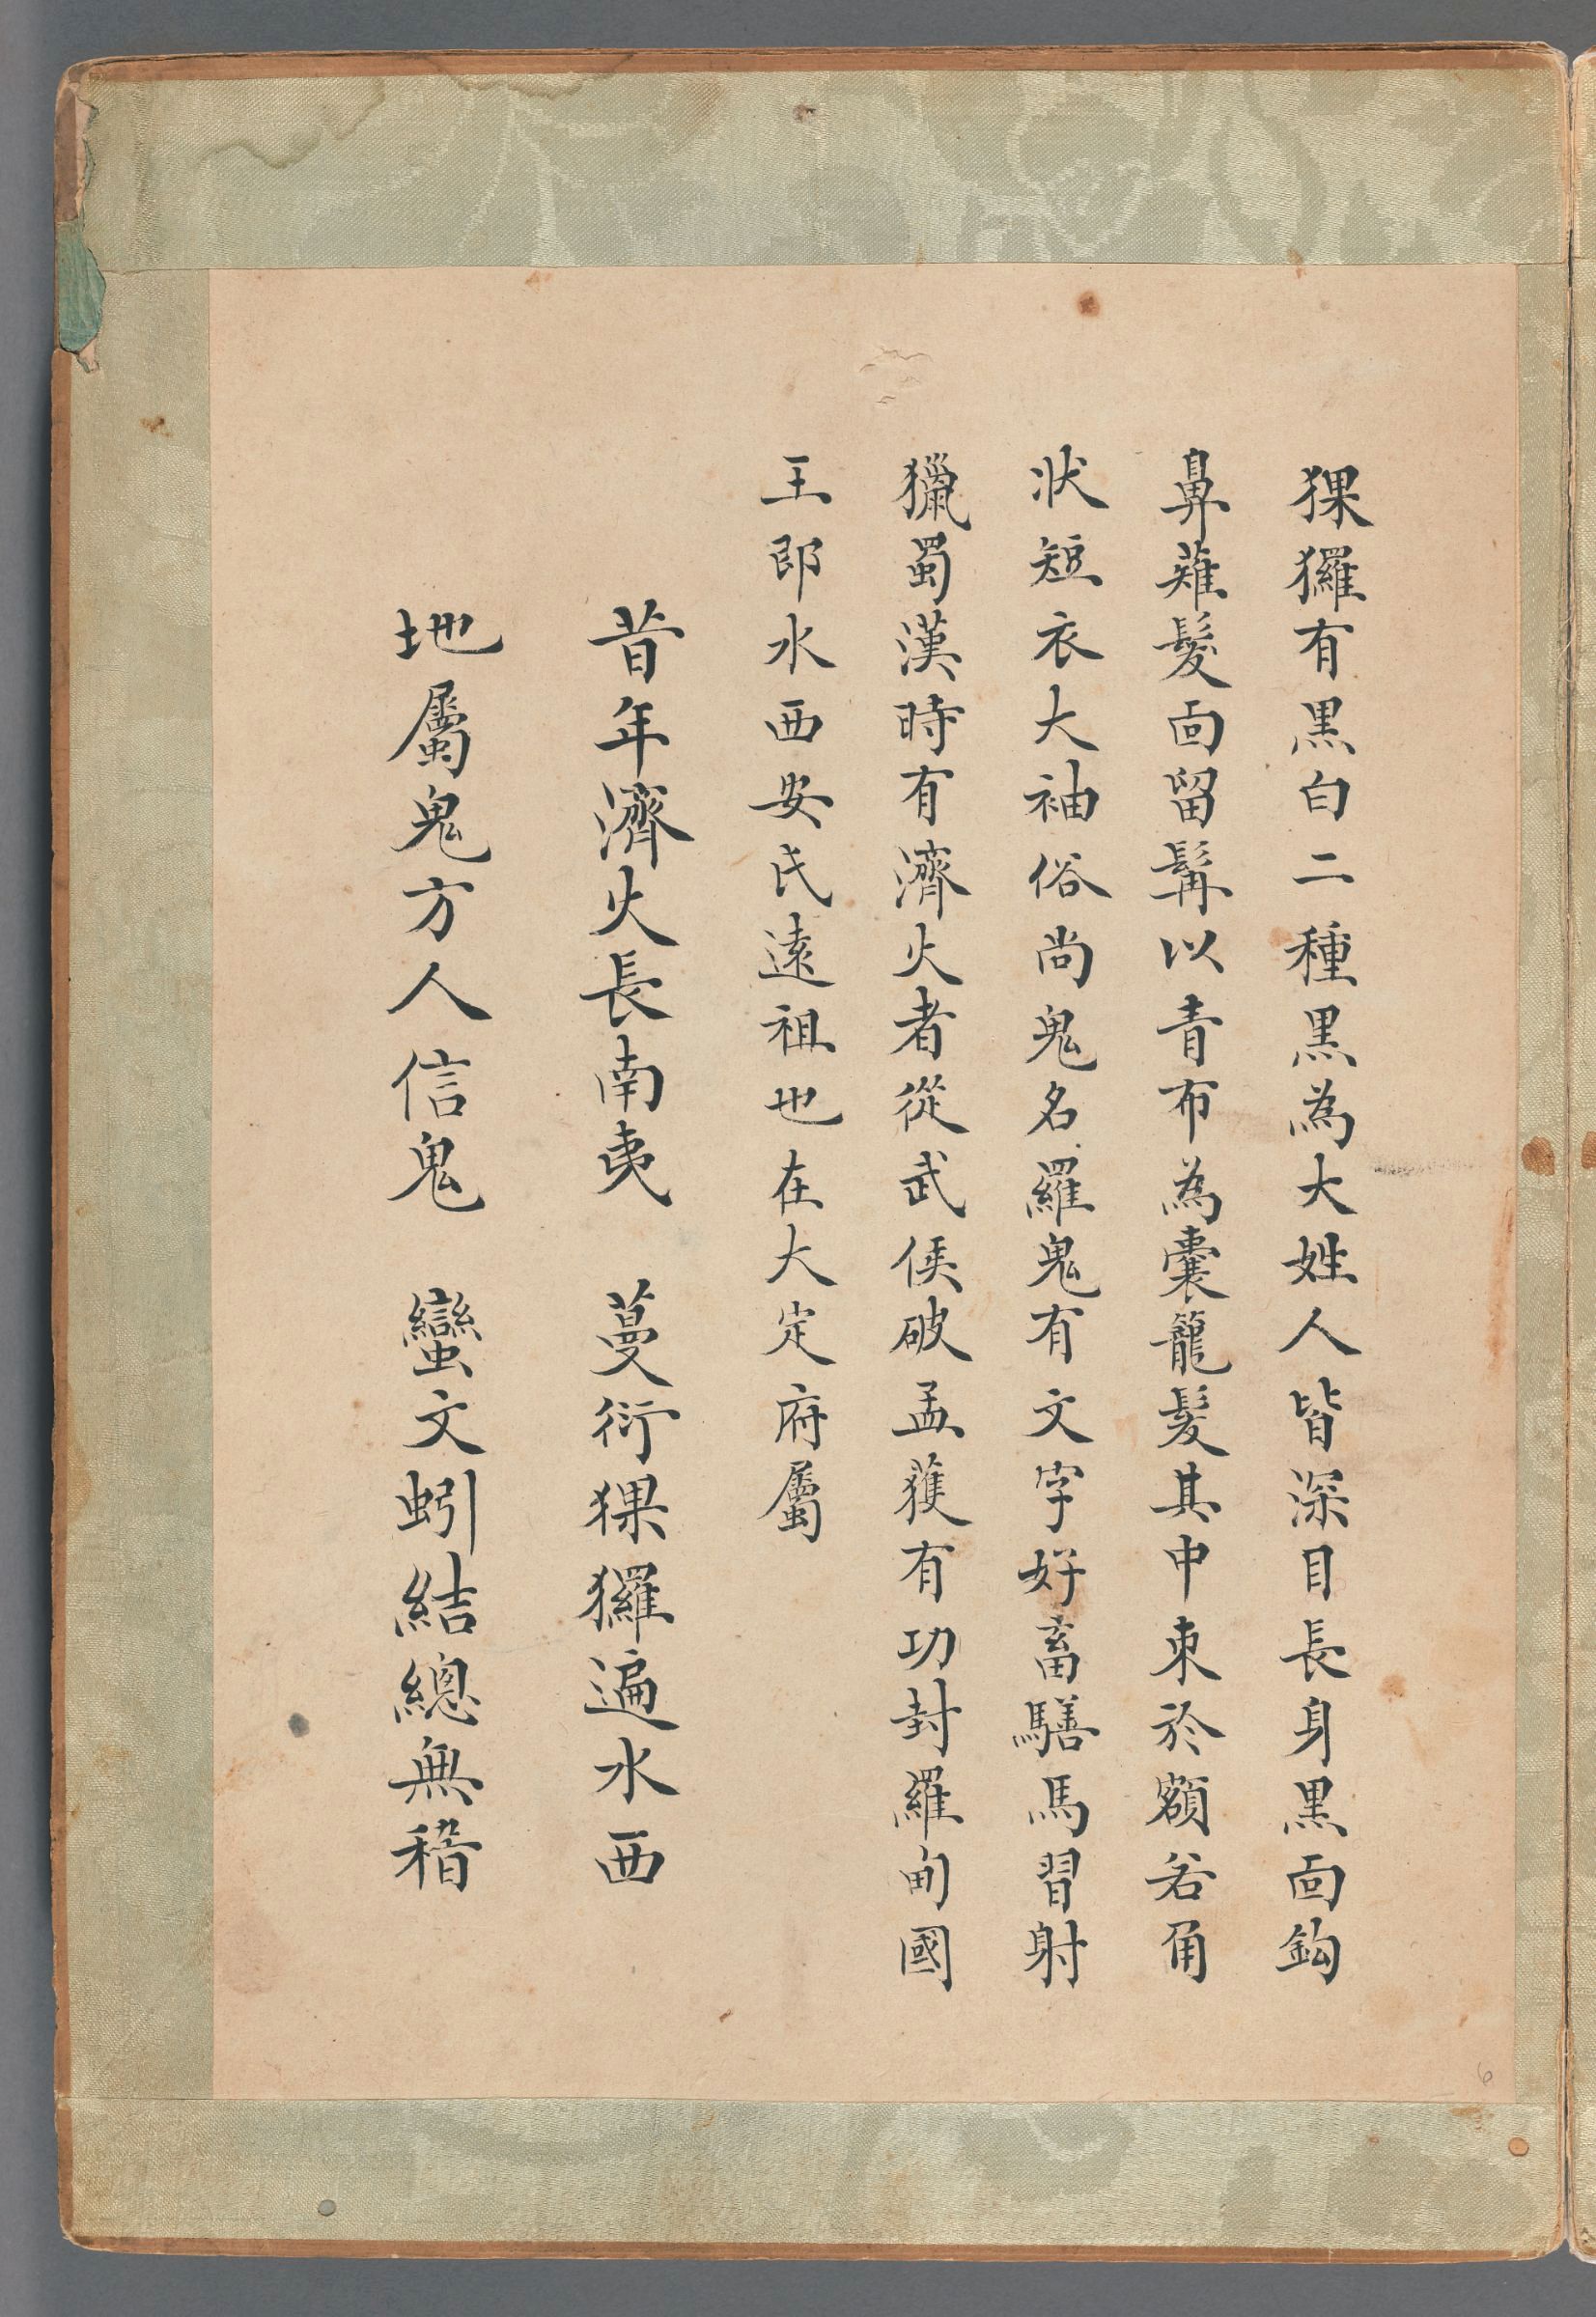 猓玀有黒白二種黒為大姓人皆深目長身黒面鈎
鼻薙髮面留髯以青布為囊籠髮其中束於額若角
狀短衣大袖俗尚鬼名羅鬼有文字好畜騸馬習射
獵蜀漢時有濟火者從武侯破孟獲有功封羅甸國
王即水西安氏遠祖也在大定府屬
昔年濟火長南夷 蔓衍猓玀遍水西
地屬鬼方人信鬼 蠻文蚓結總無稽
6